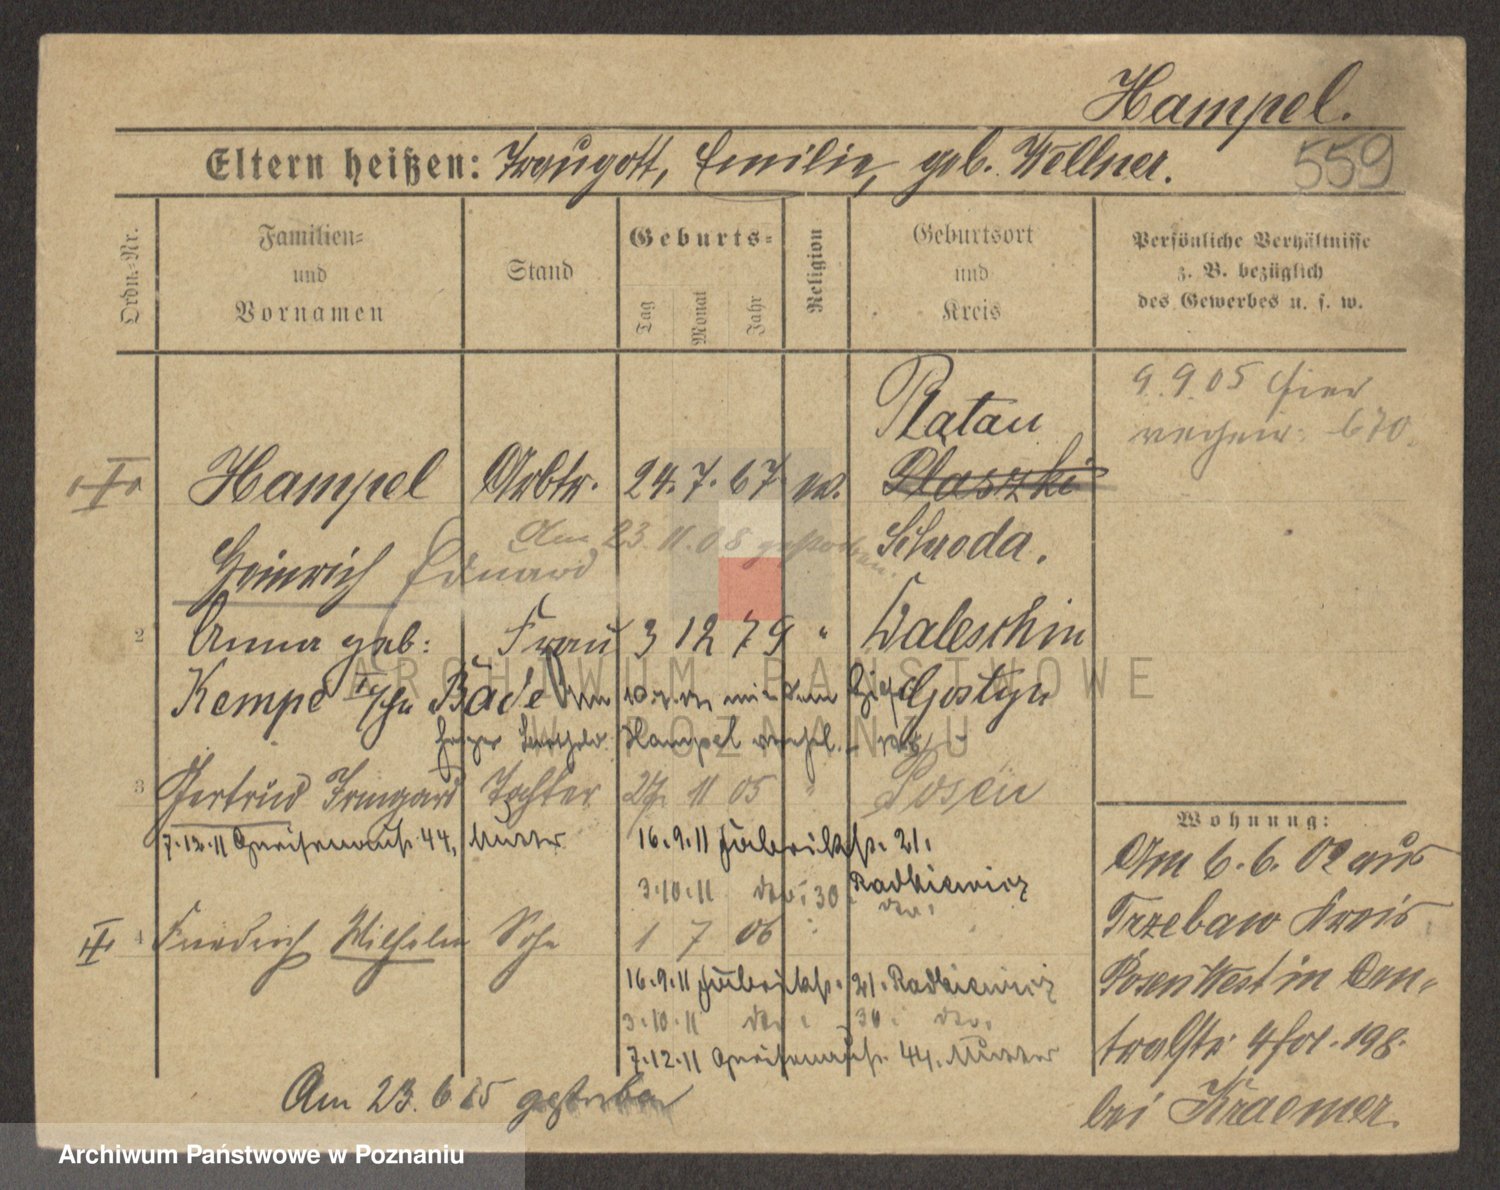 Hampel.
Eltern heißen: Traugott, Emilie, geb. Wellner.
559
Ordn.-Nr.
Familien- und Vornamen
Stand
Geburts-
Tag
Monat
Jahr
Religion
Geburtsort und Kreis
Persönliche Verhältnisse
z. B. bezüglich
des Gewerbes u. s. w.
9.9.05 hier
670.
Ratau
Hampel Arbtr. 24. 7. 67. w. Plaszki
Am 23. 11. 08 gestorben.
Heinrich Eduard Schroda.
2 Anna geb: Frau 3 12 79 " Waleschin
Kempe Bäde Am mit dem Gostyn
Hampel
3 Gertrud Irmgard Tochter 27. 11 05 " Posen
7.12.11 Gneisenaustr. 44, Mutter 16.9.11 Fabrikstr. 21.
3.10.11 do. 30 Radkiewicz
do.
4 Friedrich Wilhelm Sohn 1 7 06 "
16.9.11 Fabrikstr. 21. Radkiewicz
3.10.11 do. 30. do.
7.12.11 Gneisenaustr. 44. Mutter
Am 23. 6 15 gestorben
Wohnung:
Am 6. 6. 02 aus
Trzebaw Kreis
Posen West in Cen-
tralstr 4 fol. 198.
bei Kraemer.
ARCHIWUM PAŃSTWOWE
W POZNANIU
Archiwum Państwowe w Poznaniu